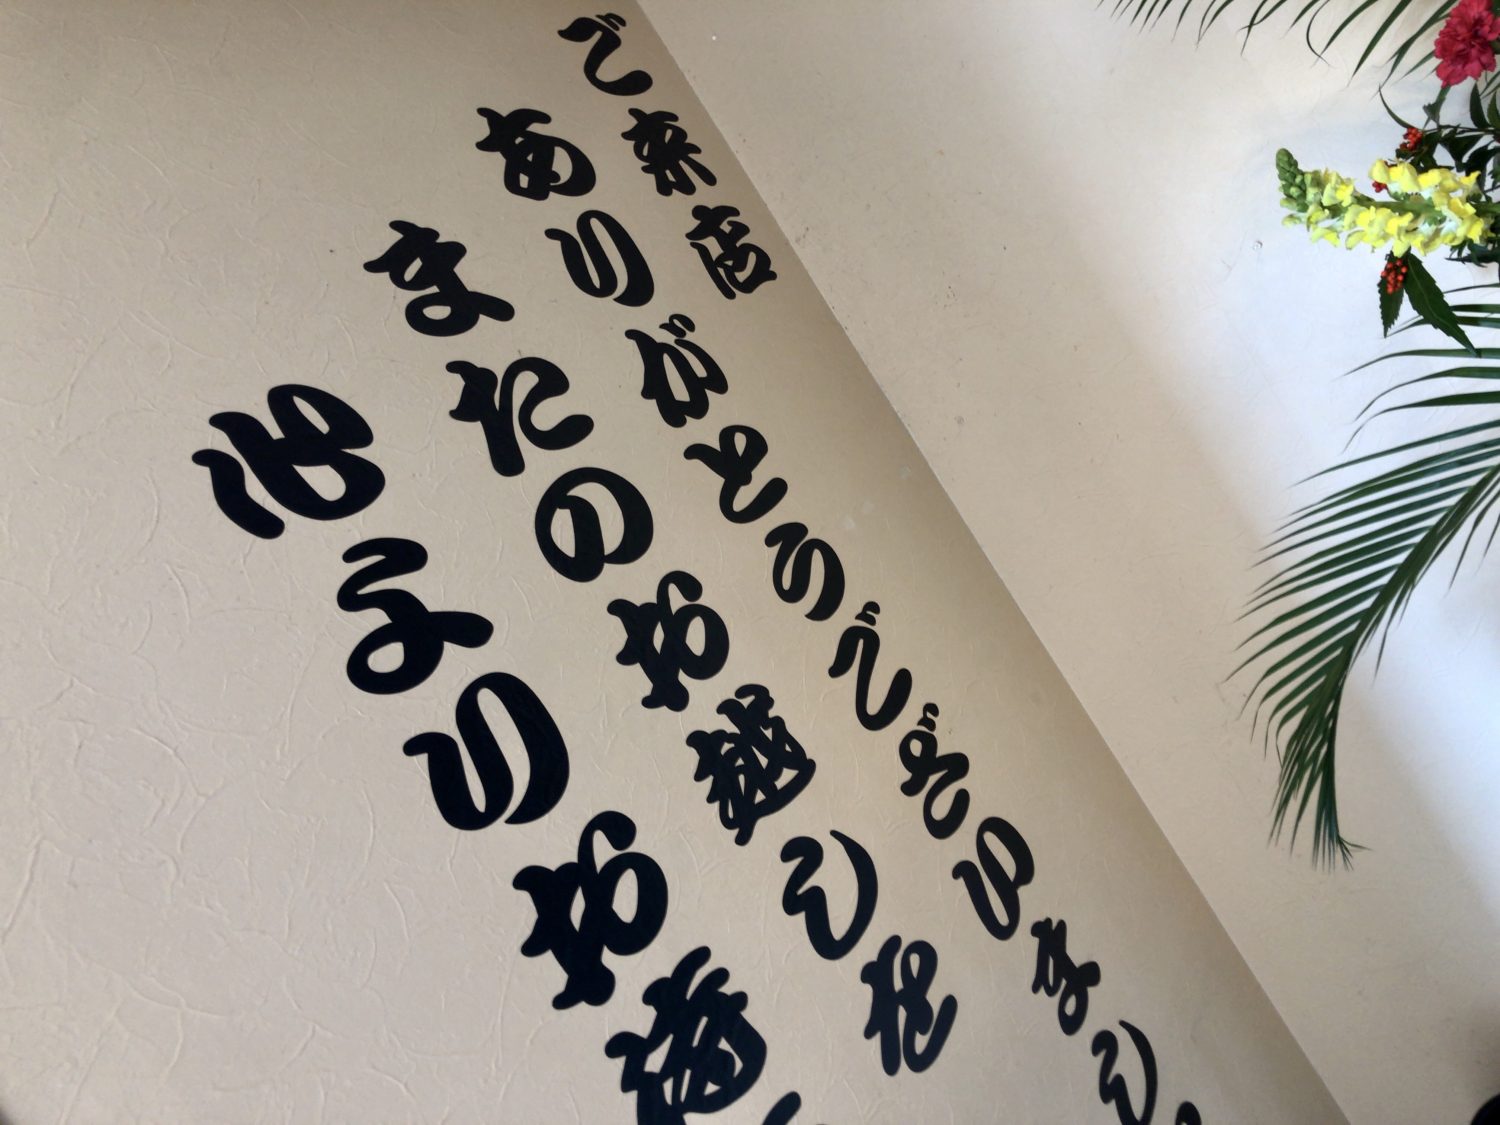 ご来店
ありがとうございまし
またのお越しを
心よりお待